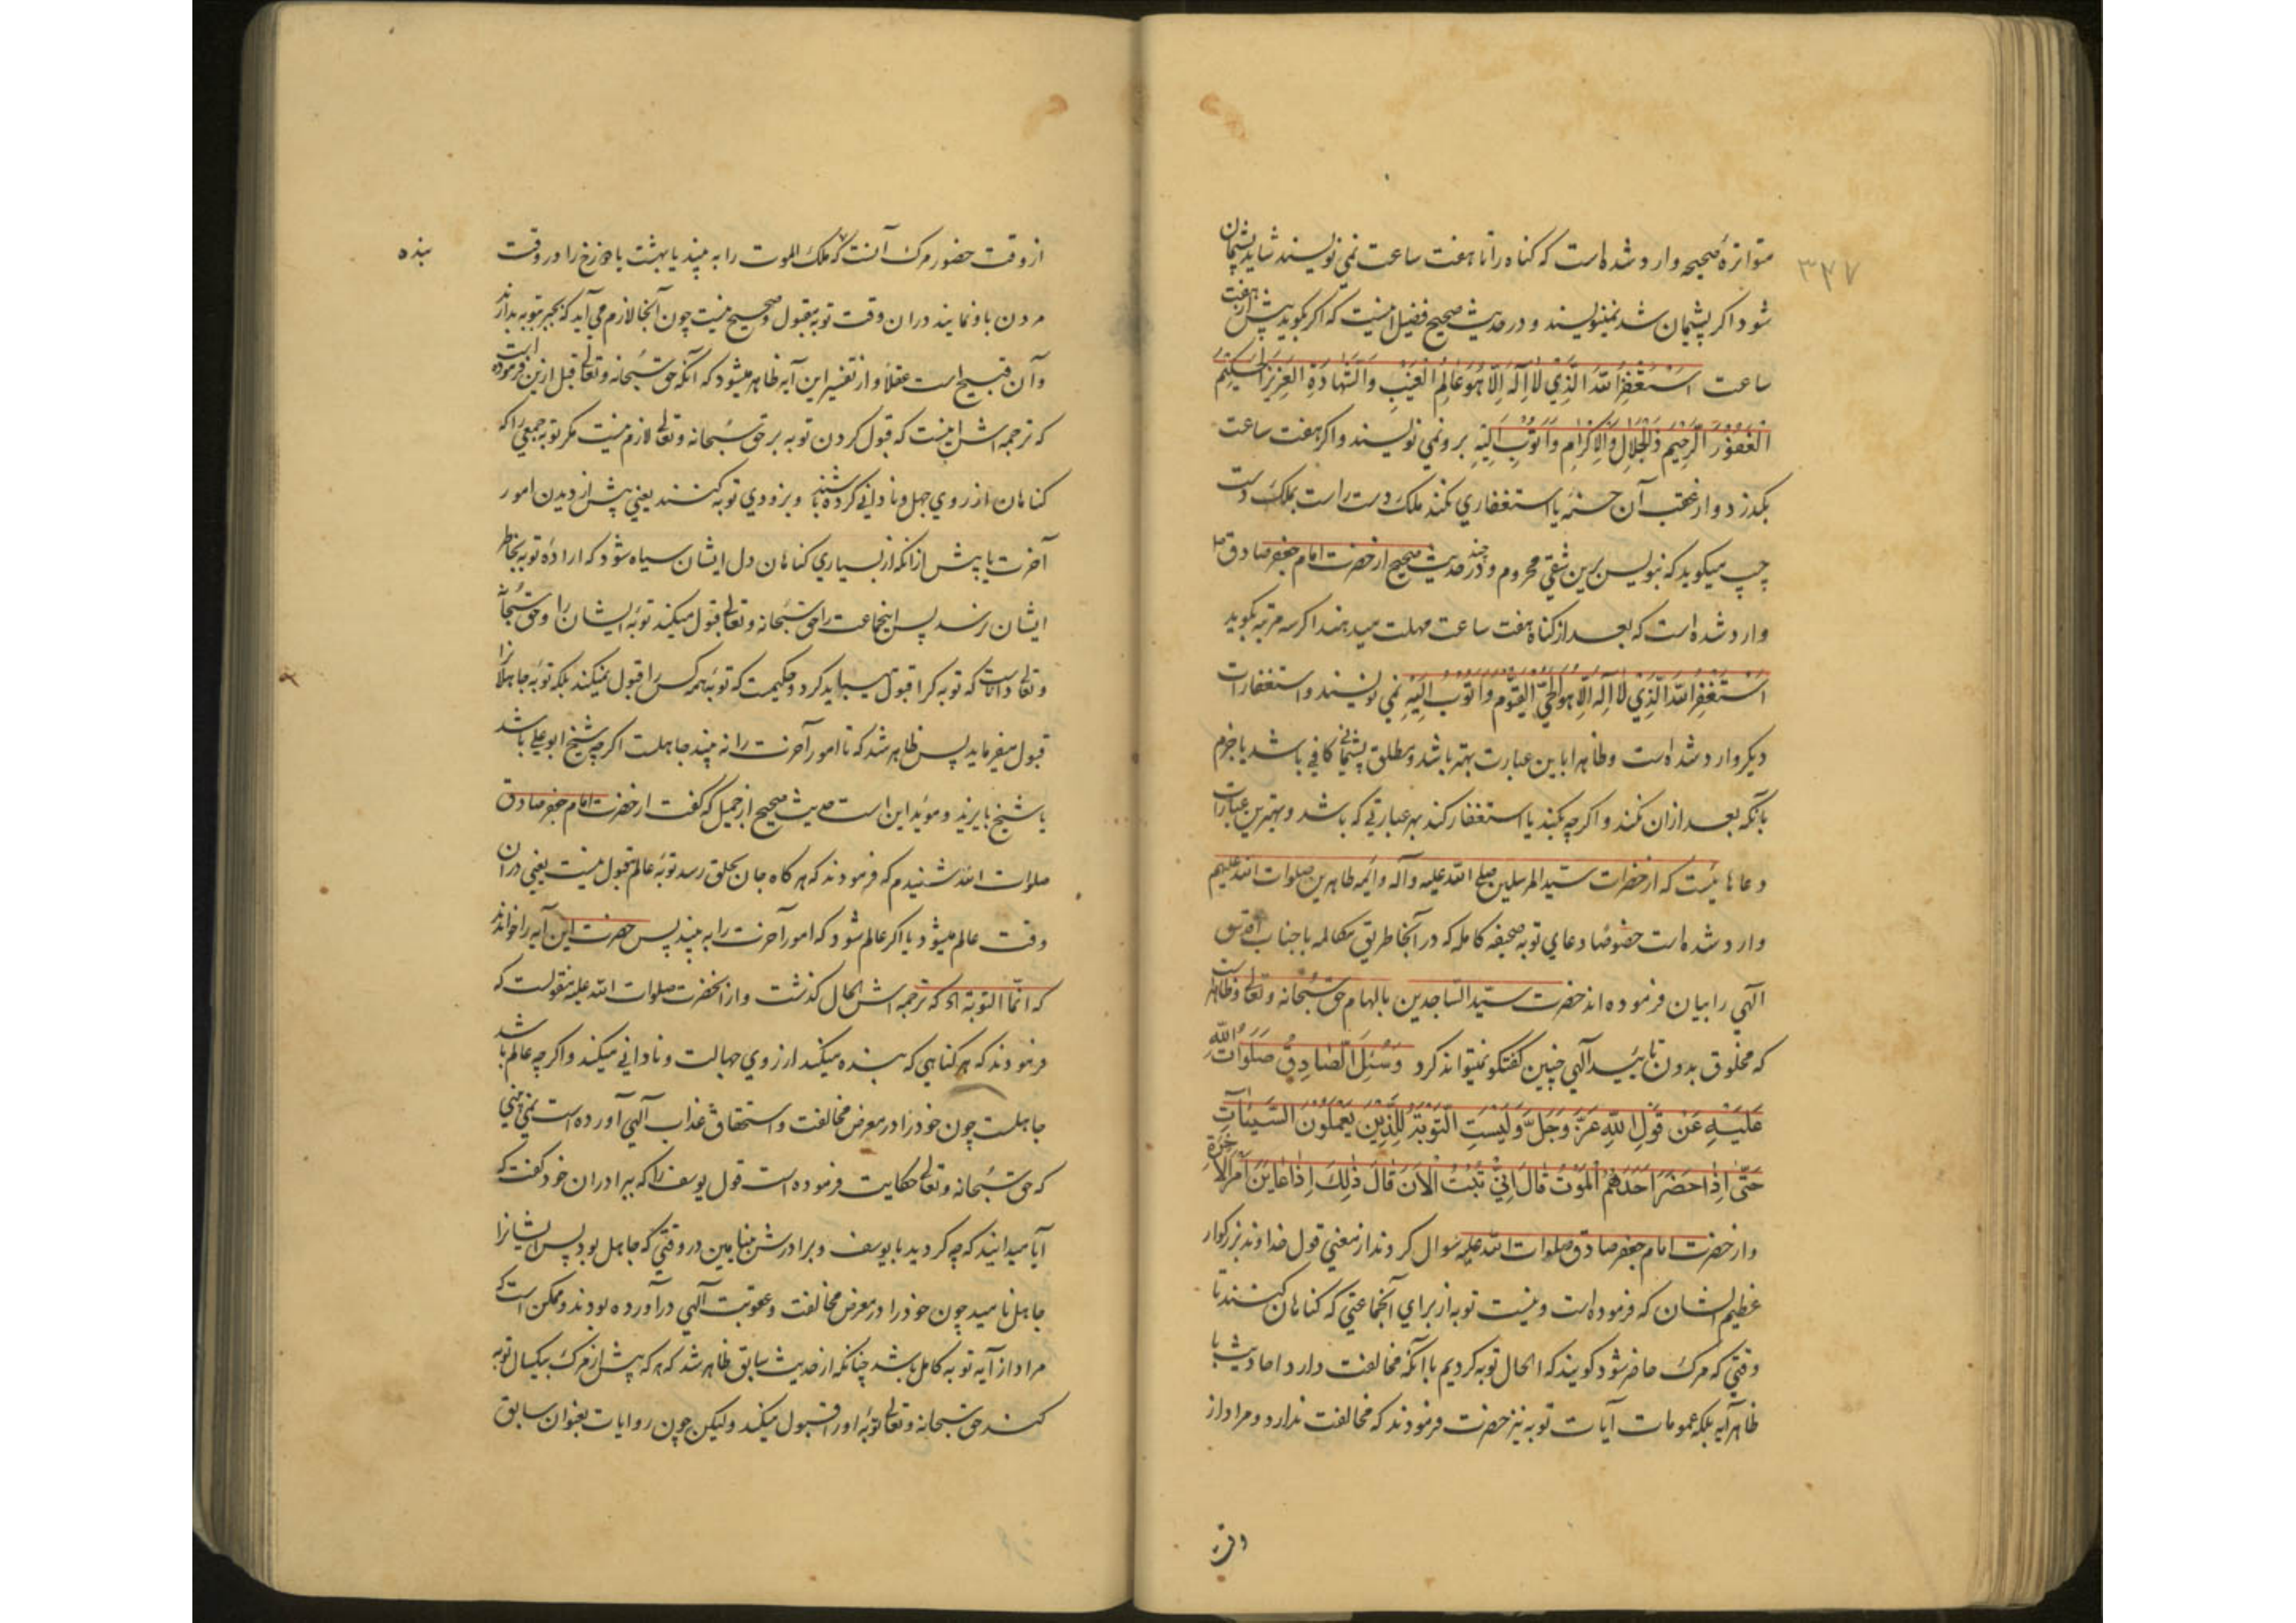 ۳۴۷
متواتره صحیحه وارد شده است که کناه را تا هفت ساعت نمی نویسند شاید پشیمان
شود اکر پشیمان شد نمینویسند و در حدیث صحیح فضیل اینست که اکر بکوید پیش از هفت
ساعت اَسْتَغْفِرُ اللّهَ الَّذِي لاٰ اِلٰهَ اِلاّٰ هُوَ عَالِمُ الْغَيْبِ وَالشَّهَادَةِ الْعَزِيزُ الْحَكِيْمُ
الْغَفُوْرُ الرَّحِيْمُ ذُالْجَلاَلِ وَالْاِكْرٰامِ وَاَتُوْبُ اِلَيْهِ برو نمی نویسند و اکر هفت ساعت
بکذرد و از عقب آن حسنهٔ یا استغفاری نکند ملک دست راست بملک دست
چپ میکوید که بنویس برین شقی محروم و در چند حدیث صحیح از حضرت امام جعفر صادق ص
وارد شده است که بعد از کناه هفت ساعت مهلت میدهند اکر سه مرتبه بکوید
اَسْتَغْفِرُ اللّهَ الَّذِيْ لاٰ اِلٰهَ اِلاّٰ هُوَ الْحَيُّ الْقَيُّوْمُ وَاَتُوْبُ اِلَيْهِ نمی نویسند و استغفارات
دیکر وارد شده است و ظاهرا باین عبارت بهتر باشد و مطلق پشیمانی کافی باشد یا جزم
بآنکه بعد ازان نکند و اکر چه بکند یا استغفار کند بهر عبارتی که باشد و بهترین عبارات
دعاهائیست که از حضرات سید المرسلین صلی الله علیه و آله و ائمه طاهرین صلوات الله علیهم
وارد شده است خصوصا دعای توبه صحیفه کامله که در آنجا طریق مکالمه با جناب اقدس
الهی را بیان فرموده اند حضرت سید الساجدین بالهام حق سُبحانه و تعالی و ظاهر است
که مخلوق بدون تایید الهی چنین کفتکو نمیتواند کرد وَسُئِلَ الصّٰادِقُ صَلَوَاتُ اللّٰهِ
عَلَيْهِ عَنْ قَوْلِ اللّهِ عَزَّ وَجَلَّ وَلَيْسَتِ التَّوْبَةُ لِلَّذِيْنَ يَعْمَلُوْنَ السَّيِّئَاتِ
حَتّٰى اِذَا حَضَرَ اَحَدَهُمُ الْمَوْتُ قَالَ اِنِّيْ تُبْتُ الْاٰنَ قَالَ ذٰلِكَ اِذَا عَايَنَ اَمْرَ الْاٰخِرَةِ
و از حضرت امام جعفر صادق صلوات الله علیه سوال کردند از معنی قول خداوند بزرکوار
عظیم الشان که فرموده است و نیست توبه از برای آنجماعتی که کناهان کنند تا
وقتی که مرک حاضر شود کویند که الحال توبه کردیم با آنکه مخالفت دارد احادیث با
ظاهر آیه بلکه عمومات آیات توبه نیز حضرت فرمودند که مخالفت ندارد و مراد از
از وقت حضور مرک آنست که ملک الموت را به بیند یا بهشت یا دوزخ را در وقت
مردن باو نمایند دران وقت توبه مقبول و صحیح نیست چون آنجا لازم می آید که بجبر توبه بدارند
وآن قبیح است عقلاً و از تفسیر این آیه ظاهر میشود که آنکه حق سُبحانه و تعالی قبل ازین فرموده است
که ترجمه اش اینست که قبول کردن توبه بر حق سُبحانه و تعالی لازم نیست مکر توبه جمعی را که
کناهان از روی جهل و نادانی کرده باشند و بزودی توبه کنند یعنی پیش از دیدن امور
آخرت یا پیش ازانکه از بسیاری کناهان دل ایشان سیاه شود که ارادهٔ توبه بخاطر
ایشان نرسد پس اینجماعت را حق سُبحانه و تعالی قبول میکند توبهٔ ایشان را و حق سُبحانه
و تعالی داناست که توبه کرا قبول میباید کرد و حکیمست که توبه همه کس را قبول نمیکند بلکه توبه جاهلانرا
قبول میفرماید پس ظاهر شد که تا امور آخرت را نه بیند جاهلست اکر چه شیخ ابو علی باشد
یا شیخ بایزید و موید این است حدیث صحیح از جمیل که کفت از حضرت امام جعفر صادق
صلوات الله شنیدم که فرمودند که هرکاه جان بحلق رسد توبه عالم قبول نیست یعنی دران
وقت عالم میشود یا اکر عالم شود که امور آخرت را به بیند پس حضرت این آیه را خواندند
که انّما التوبة اه که ترجمه اش الحال کذشت و از انحضرت صلوات الله علیه منقولست که
فرمودند که هر کناهی که بنده میکند از روی جهالت و نادانی میکند و اکر چه عالم باشد
جاهلست چون خود را در معرض مخالفت و استحقاق عذاب الهی آورده است نمی بینی
که حق سُبحانه و تعالی حکایت فرموده است قول یوسف را که ببرادران خود کفت که
آیا میدانید که چه کردید با یوسف و برادرش بنیامین در وقتی که جاهل بودید پس ایشانرا
جاهل نامید چون خود را در معرض مخالفت و عقوبت الهی درآورده بودند و ممکن است که
مراد از آیه توبه کامل باشد چنانکه از حدیث سابق ظاهر شد که هر که پیش از مرک بیکسال توبه
کند حق سُبحانه و تعالی توبهٔ او را قبول میکند و لیکن چون روایات بعنوان سابق
بنده